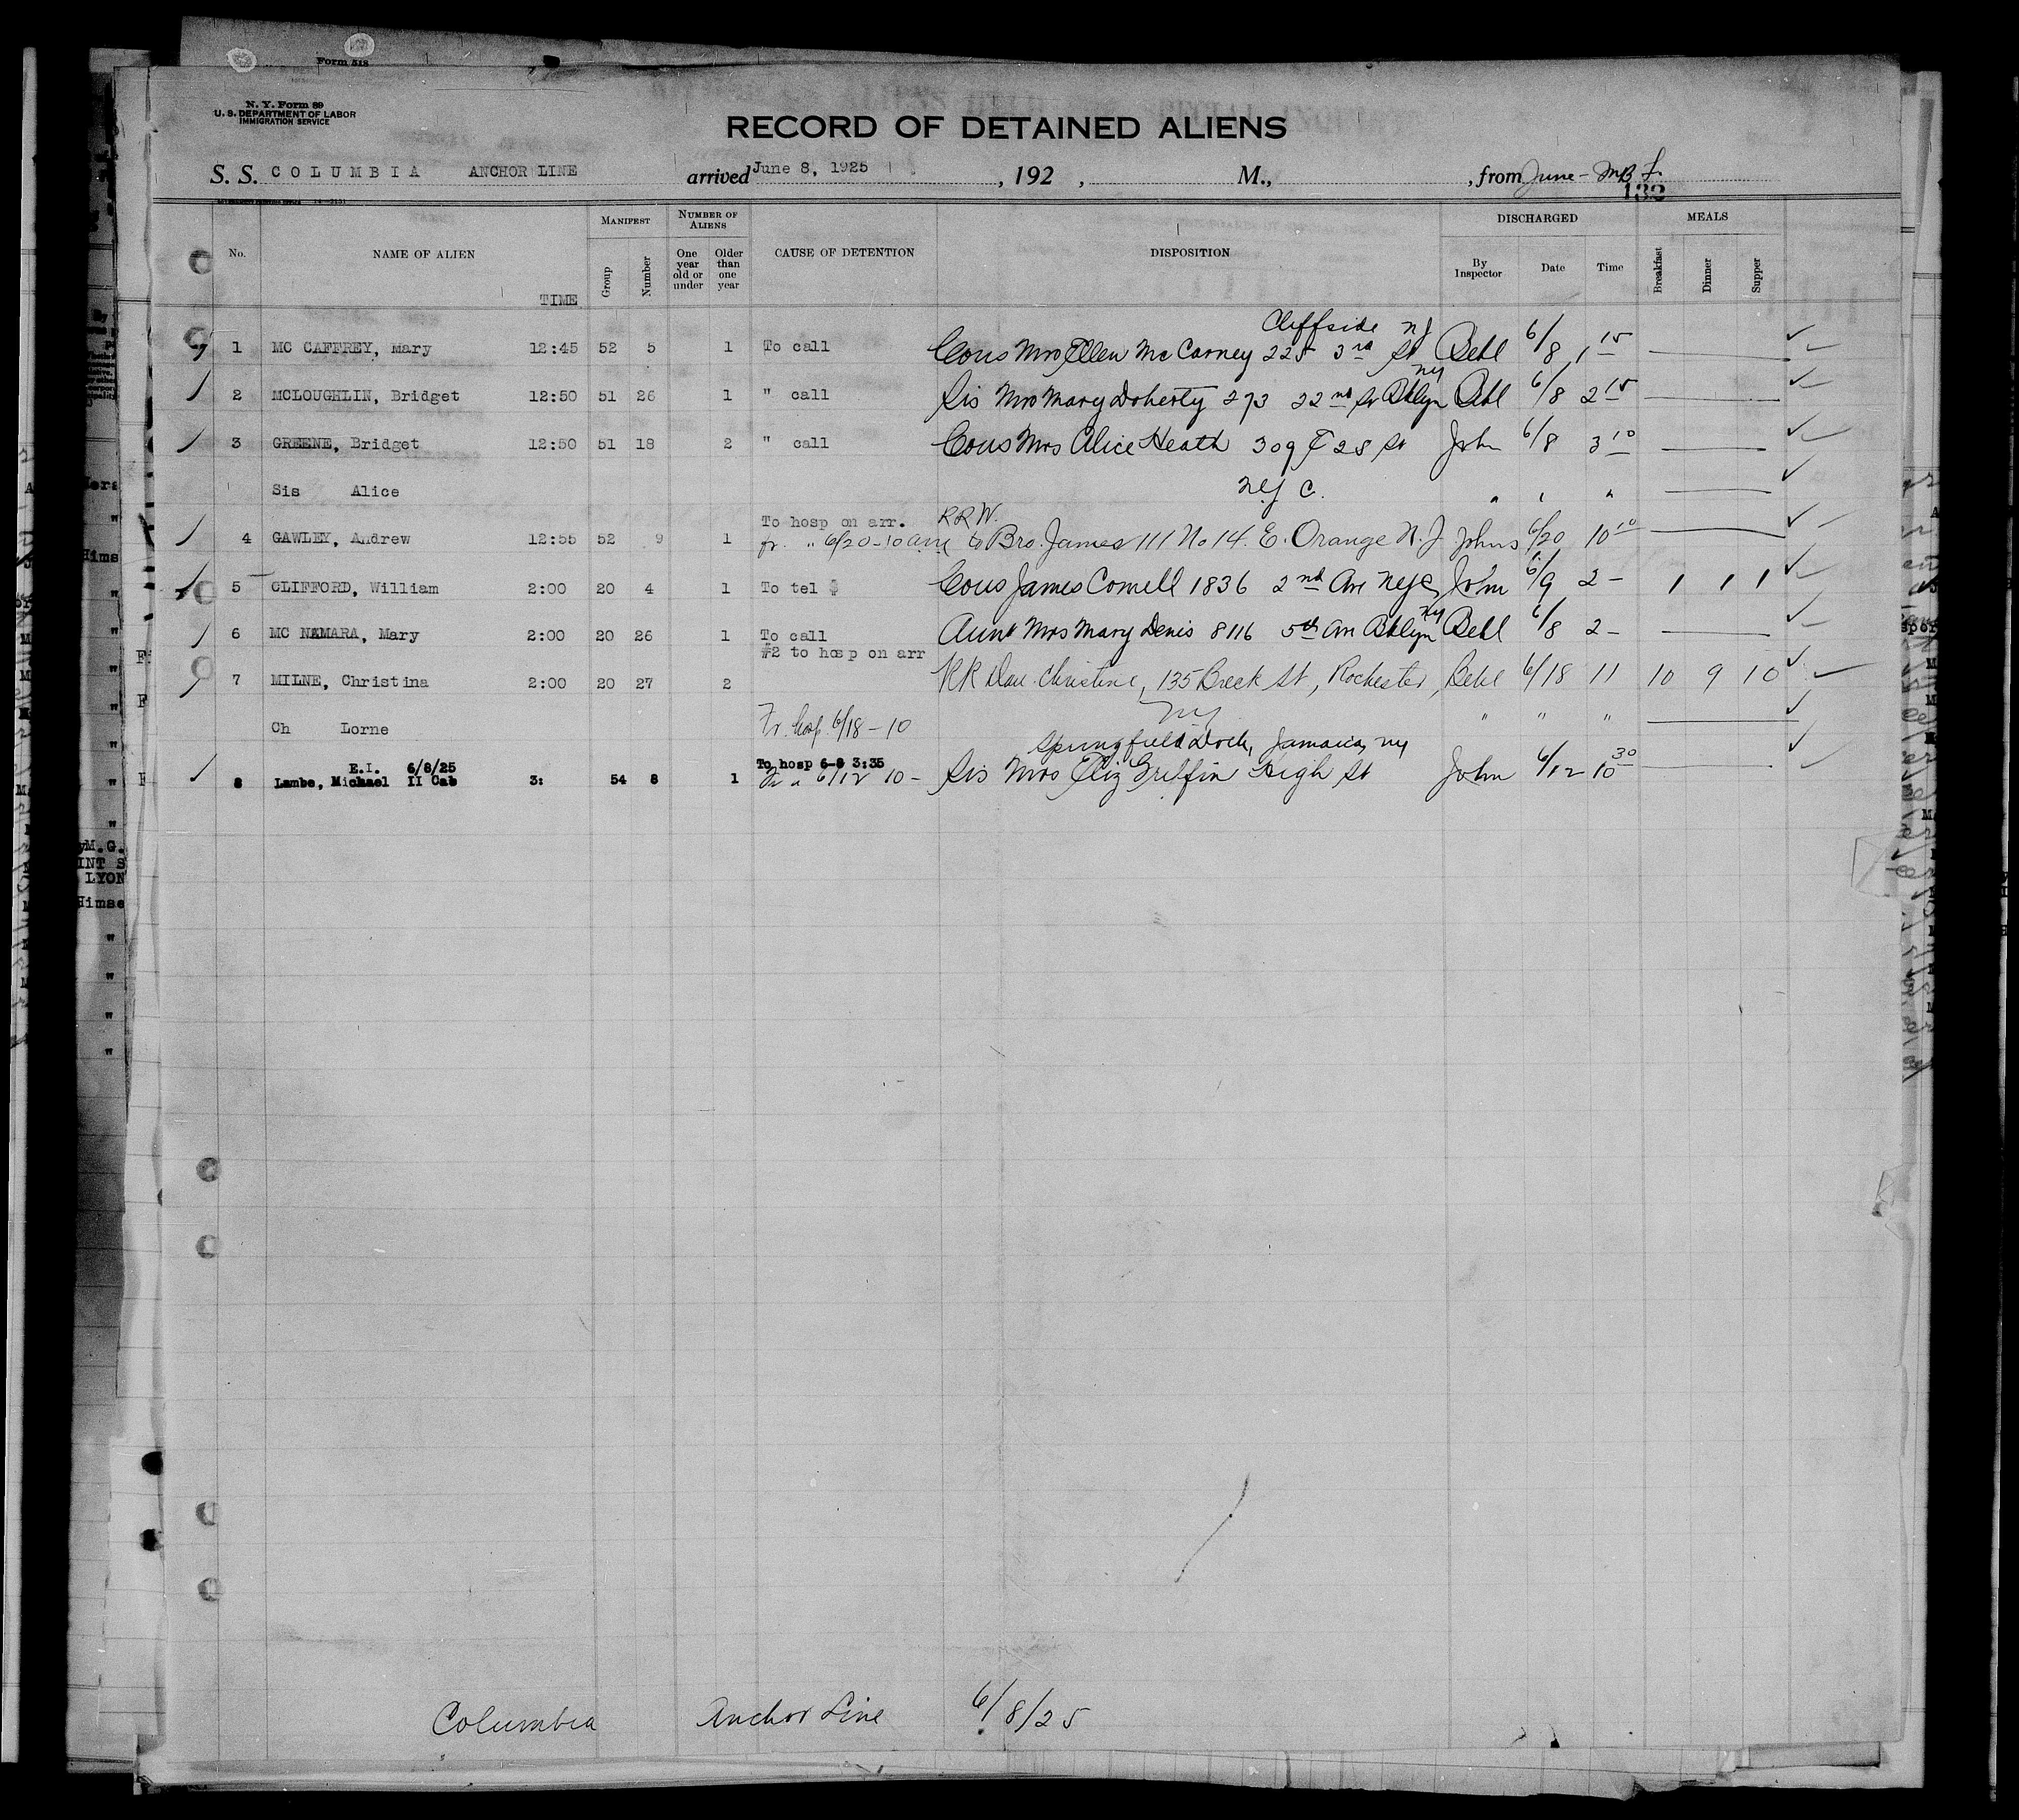 Form 518
N. Y. Form 89
U. S. DEPARTMENT OF LABOR
IMMIGRATION SERVICE
RECORD OF DETAINED ALIENS
S. S. COLUMBIA ANCHOR LINE arrived June 8, 1925, 192 , M., , from June - MBF.
132
No. NAME OF ALIEN TIME MANIFEST Group Number NUMBER OF ALIENS One year old or under Older than one year CAUSE OF DETENTION DISPOSITION DISCHARGED By Inspector Date Time MEALS Breakfast Dinner Supper
Cliffside NJ
1 MC CAFFREY, Mary 12:45 52 5 1 To call Cous Mrs Ellen McCarney 225 3rd St Behl 6/8 1 15
NY
2 MCLOUGHLIN, Bridget 12:50 51 26 1 " call Sis Mrs Mary Doherty 273 22nd St Bklyn Behl 6/8 2 15
3 GREENE, Bridget 12:50 51 18 2 " call Cous Mrs Alice Heath 309 E 28 St John 6/8 3 10
Sis Alice NYC. " " "
To hosp on arr. RRW.
4 GAWLEY, Andrew 12:55 52 9 1 fr. " 6/20-10am to Bro. James 111 No 14. E. Orange N.J Johns 6/20 10 10
5 CLIFFORD, William 2:00 20 4 1 To tel $ Cous James Connell 1836 2nd Ave NYC John 6/9 2 - 1 1 1
NY
6 MC NAMARA, Mary 2:00 20 26 1 To call Aunt Mrs Mary Denis 8116 5th Ave Bklyn Behl 6/8 2 -
#2 to hosp on arr
7 MILNE, Christina 2:00 20 27 2 RR Dau Christine, 135 Breck St, Rochester, Behl 6/18 11 10 9 10
NY
Ch Lorne Fr. hosp. 6/18 - 10 " " "
Springfield Dock, Jamaica, NY
E.I. 6/8/25 To hosp 6-8 3:35
8 Lambe, Michael II Cab 3: 54 8 1 Fr " 6/12 10 - Sis Mrs Eliz Griffin High St John 6/12 10 30
Columbia Anchor Line 6/8/25